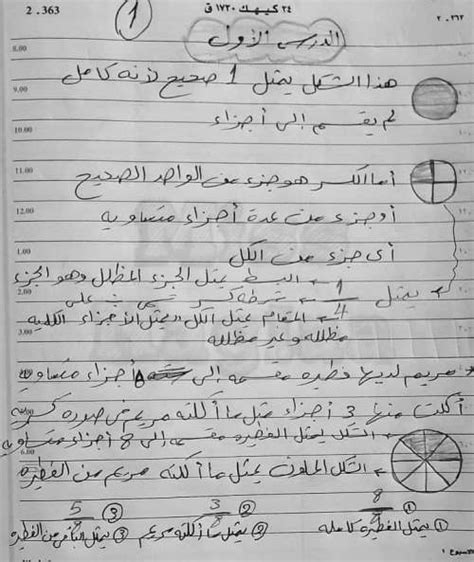 2.363
٢٤ كيهك ١٧٢٠ ق
٢.٣٦٣
①
الدرس الأول
8.00
هذا الشكل يمثل 1 صحيح لأنه كامل
9.00
لم يقسم إلى أجزاء
10.00
11.00
أما الكسر هو جزء من الواحد الصحيح
12.00
أو جزء من عدة أجزاء متساوية
1.00
أى جزء من الكل
البسط يمثل الجزء المظلل وهو الجزء
2.00
يمثل 1/4 شرطة كسر
المقام يمثل الكل (يمثل الأجزاء الكلية
3.00
مظلله وغير مظلله
مريم لديها فطيره مقسمه إلى 8 أجزاء متساويه
أكلت منها 3 أجزاء مثل ما أكلته مريم فى صوره كسريه
الشكل يمثل الفطيره مقسمه إلى 8 أجزاء متساويه
6.00
الشكل الملون يمثل ما أكلته مريم من الفطيره
① 8/8 ② 3/8 ③ 5/8
① يمثل الفطيره كامله ② يمثل ما أكلته مريم ③ يمثل الباقى من الفطيره